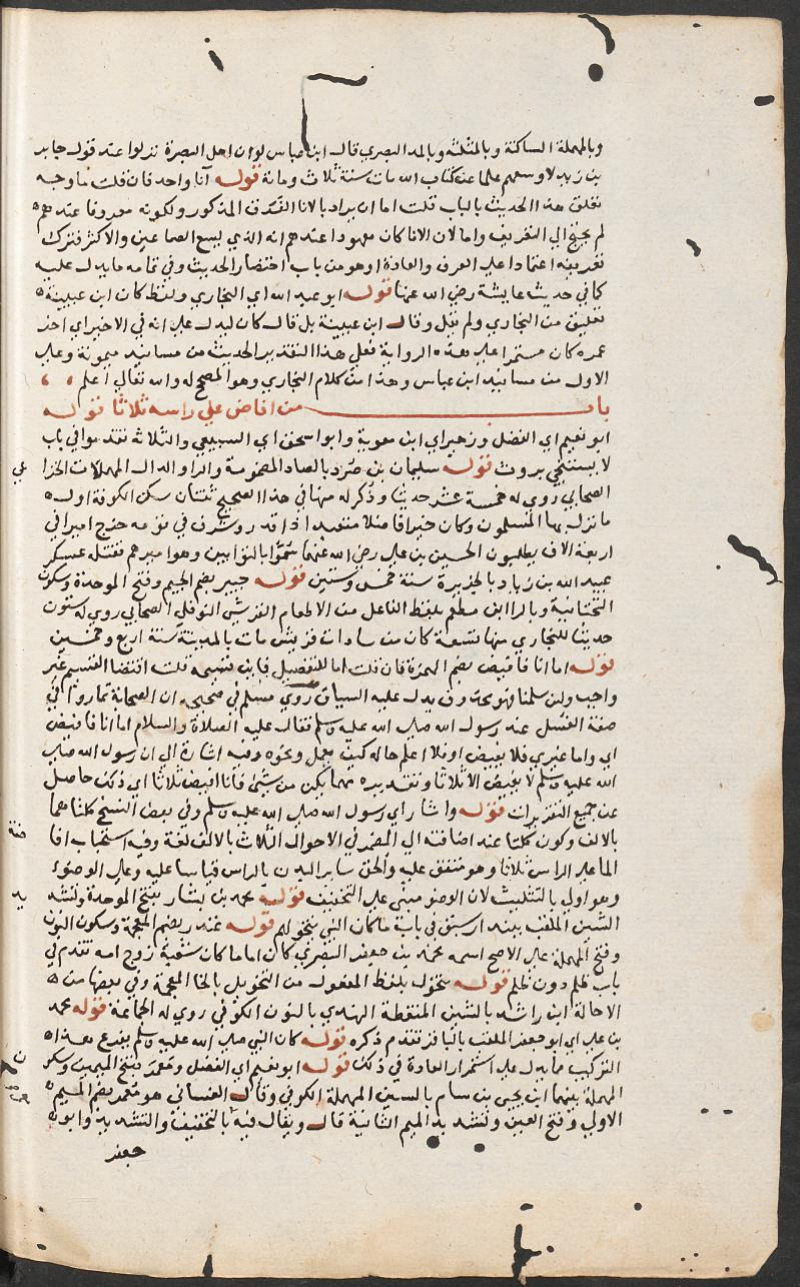 وبالمهملة الساكنة وبالمثلثة وبالمد البصري قال ابن عباس لو ان اهل البصرة نزلوا عند قول جابر
بن زيد لاوسعهم علما عن كتاب الله مات سنة ثلاث ومائة قوله انا واحد فان قلت ما وجه
تعلق هذا الحديث بالباب قلت اما ان يراد بالانا الفرق المذكور ولكونه معروفا عندهم
لم يحتج الي التعريف واما لان الانا كان معهودا عندهم انه الذي يسع الصاعين والاكثر فترك
تعريفه اعتمادا علي العرف والعادة او هو من باب اختصار الحديث وفي تمامه ما يدل عليه
كما في حديث عايشة رضي الله عنها قوله ابو عبد الله اي البخاري ولفظ كان ابن عيينة
تعليق من البخاري ولم يقل وقال ابن عيينة بل قال كان ليدل علي انه في الاخير اي اخر
عمره كان مستمرا علي هذه الرواية فعلي هذا التقدير الحديث من مسانيد ميمونة وعلي
الاول من مسانيد ابن عباس وهذا من كلام البخاري وهو المصحح له والله تعالي اعلم
باب من افاض علي راسه ثلاثا قوله
ابو نعيم اي الفضل وزهير اي ابن معوية وابو اسحق اي السبيعي والثلاثة تقدموا في باب
لا يستنجي بروث قوله سليمان بن صرد بالصاد المضمومة والراء والدال المهملات الخزا
الصحابي روي له خمسة عشر حديثا وذكر له منها في هذا الصحيح ثنتان سكن الكوفة اول
ما نزل بها المسلمون وكان خيرا فاضلا متعبدا ذا قدر وشرف في قومه خرج اميرا في
اربعة الاف يطلبون الحسين بن علي رضي الله عنهما سموا بالتوابين وهو اميرهم فقتله عسكر
عبيد الله بن زياد بالجزيرة سنة خمس وستين قوله جبير بضم الجيم وفتح الموحدة وسكون
التحتانية وبالراء ابن مطعم بلفظ الفاعل من الاطعام القرشي النوفلي الصحابي روي له ستون
حديثا للبخاري منها تسعة كان من سادات قريش مات بالمدينة سنة اربع وخمسين
قوله اما انا فافيض بضم الهمزة فان قلت اما للتفصيل فاين قسيمه قلت اقتضا القسيم غير
واجب ولئن سلمنا فهو محذوف يدل عليه السياق روي مسلم في صحيحه ان الصحابة تماروا في
صفة الغسل عند رسول الله صلي الله عليه وسلم فقال عليه الصلاة والسلام اما انا فافيض
اي واما غيري فلا يفيض او فلا اعلم حاله كيف يعمل ونحوه وفيه اشارة الي ان رسول الله صلي
الله عليه وسلم لا يفيض الا ثلاثا وتقديره مهما يكن من شيء فانا افيض ثلاثا اي ذلك حاصل
عن جميع التقديرات قوله واشار اي رسول الله صلي الله عليه وسلم وفي بعض النسخ كلتاهما
بالالف وكون كلتا عند اضافته الي المضمر في الاحوال الثلاث بالالف لغة وفيه استحباب افا
الما علي الراس ثلاثا وهو متفق عليه والحق ساير البدن بالراس قياسا عليه وعلي الوضوء
وهو اولي بالتثليث لان الوضو مبني علي التخفيف قوله محمد بن بشار بفتح الموحدة ولشد
الشين الملقب ببندار سبق في باب ما كان النبي يتخولهم قوله غندر بضم المعجمة وسكون النون
وفتح المهملة علي الاصح اسمه محمد بن جعفر البصري كان اماما كان شعبة زوج امه تقدم في
باب ظلم دون ظلم قوله مخول بلفظ المفعول من التخويل بالخا المعجمة وفي بعضها من
الاحالة ابن راشد بالشين المنقطة الهندي بالنون الكوفي روي له الجماعة قوله محمد
بن علي اي ابو جعفر الملقب بالباقر تقدم ذكره قوله كان النبي صلي الله عليه وسلم يفرغ هذا
التركيب ما يدل علي استمرار العادة في ذلك قوله ابو نعيم اي الفضل ومعمر بفتح الميمين وسكو
المهملة بينهما ابن يحيي بن سام بالسين المهملة الكوفي وقال الغساني هو معمر بضم الميم
الاولي وفتح العين وتشديد الميم الثانية قال ويقال فيه بالتخفيف والتشديد وابو
جعفر